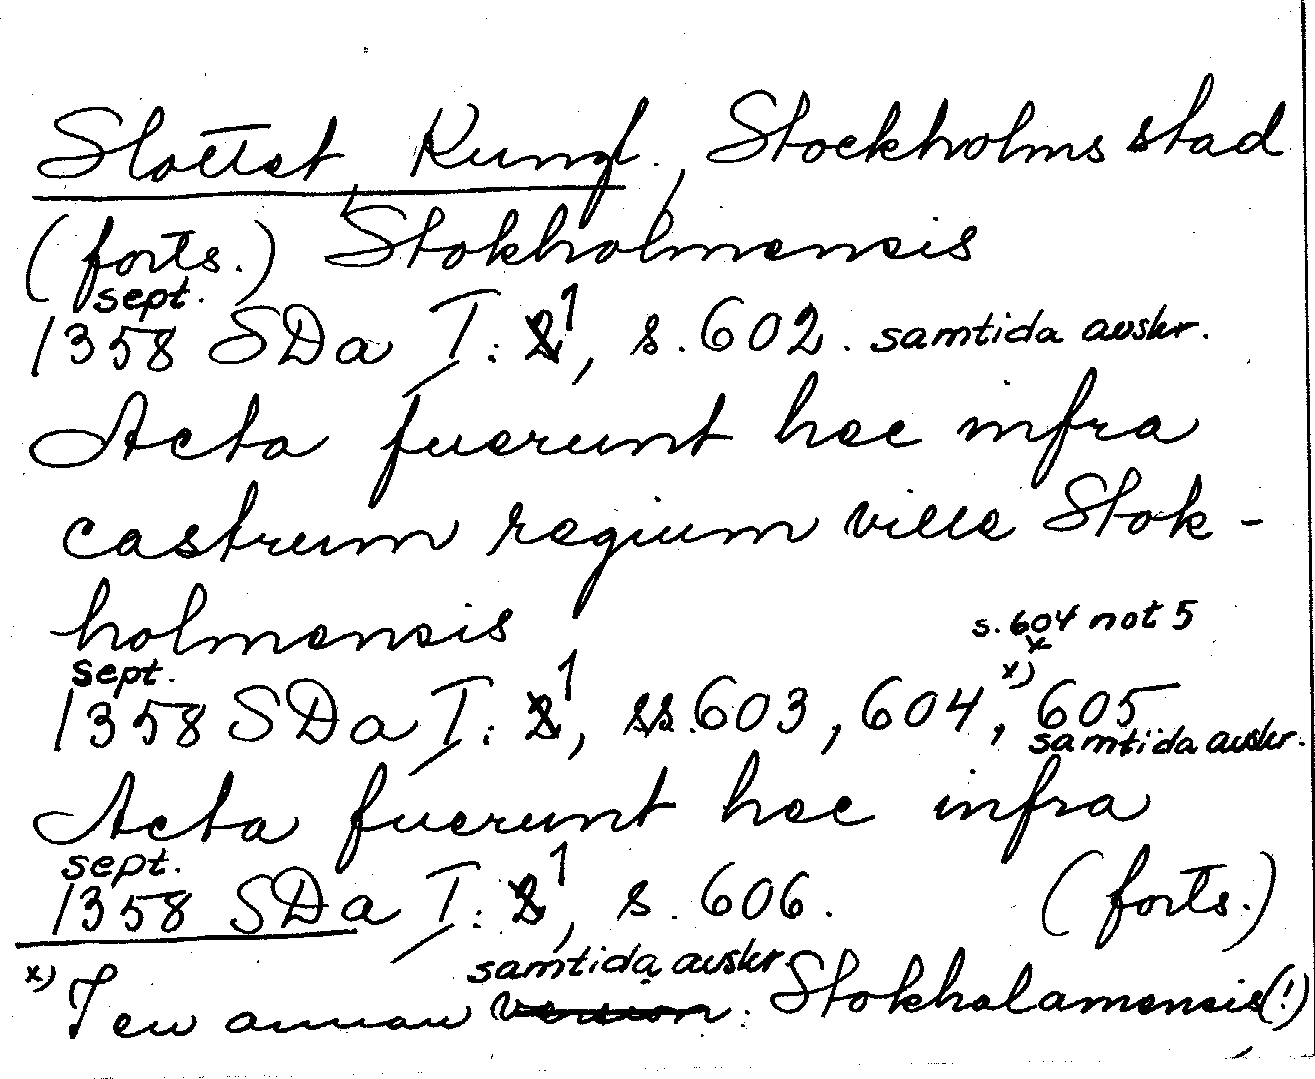 Slottet, Kungl., Stockholms stad
(forts.) Stokholmensis
sept.
1358 SDa I: 1, s. 602. samtida avskr.
Acta fuerunt hec infra
castrum regium ville Stok-
holmensis
s. 604 not 5
sept.
1358 SDa I: 1, ss. 603, 604, x) 605
samtida avskr.
Acta fuerunt hec infra
sept.
1358 SDa I: 1, s. 606. (forts.)
samtida avskr
x) I en annan version: Stokholamensis(!)